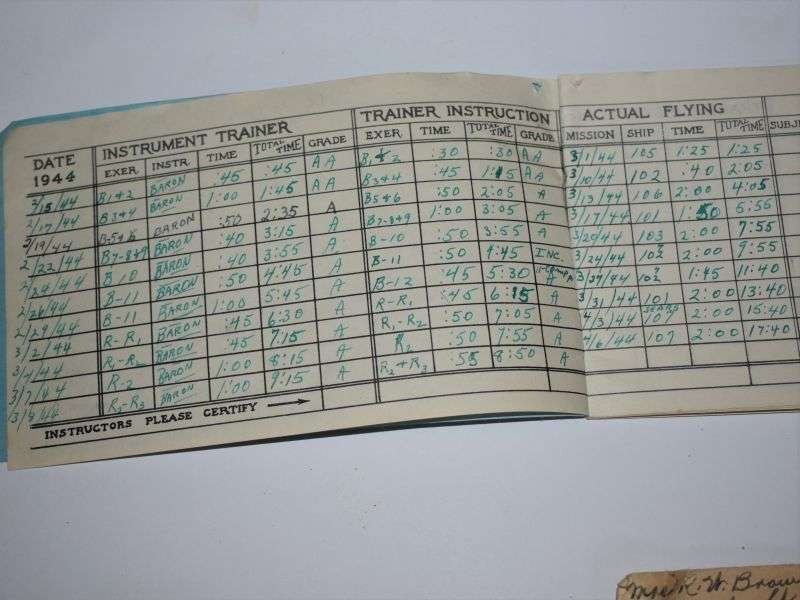 INSTRUMENT TRAINER TRAINER INSTRUCTION ACTUAL FLYING
DATE 1944 EXER. INSTR. TIME TOTAL TIME GRADE EXER. TIME TOTAL TIME GRADE MISSION SHIP TIME TOTAL TIME SUBJ
2/15/44 B1+2 BARON :45 :45 AA B1+2 :30 :30 AA 3/1/44 105 1:25 1:25
2/17/44 B3+4 BARON 1:00 1:45 AA B3+4 :45 1:15 AA 3/10/44 102 :40 2:05
2/19/44 B-5+6 BARON :50 2:35 A B5+6 :50 2:05 A 3/13/44 106 2:00 4:05
2/22/44 B7-8+9 BARON :40 3:15 A B7-8+9 1:00 3:05 A 3/17/44 101 1:50 5:55
2/24/44 B-10 BARON :40 3:55 A B-10 :50 3:55 A 3/20/44 103 2:00 7:55
2/26/44 B-11 BARON :50 4:45 A B-11 :50 4:45 INC. 3/24/44 102 2:00 9:55
2/29/44 B-11 BARON 1:00 5:45 A B-12 :45 5:30 A 3/27/44 102 1:45 11:40
3/2/44 R-R1 BARON :45 6:30 A R-R1 :45 6:15 A 3/31/44 101 2:00 13:40
3/4/44 R1-R2 BARON :45 7:15 A R1-R2 :50 7:05 A 4/3/44 107 2:00 15:40
3/7/44 R-2 BARON 1:00 8:15 A R2 :50 7:55 A 4/6/44 107 2:00 17:40
3/9/44 R2-R3 BARON 1:00 9:15 A R2+R3 :55 8:50 A
INSTRUCTORS PLEASE CERTIFY
Mrs R.W. Brow